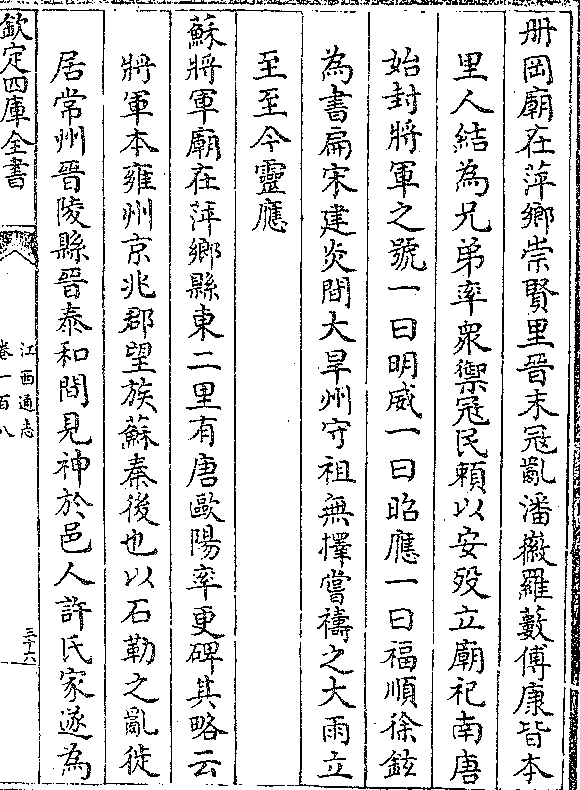 冊岡廟在萍鄉崇賢里晉末冦亂潘㩲羅藪傅康皆本
里人結為兄弟率衆禦冦民賴以安歿立廟祀南唐
始封將軍之號一曰明威一曰昭應一曰福順徐鉉
為書扁宋建炎間大旱州守祖無擇嘗禱之大雨立
至至今靈應
蘇將軍廟在萍鄉縣東二里有唐歐陽率更碑其略云
將軍本雍州京兆郡望族蘇秦後也以石勒之亂徙
居常州晉陵縣晉泰和間見神於邑人許氏家遂為
欽定四庫全書
江西通志
卷一百八
三十六